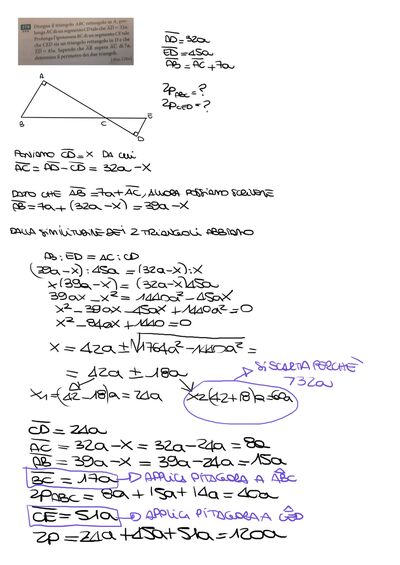 Disegna il triangolo ABC rettangolo in A, pro-
lunga AC di un segmento CD tale che AD = 32a.
Prolunga l'ipotenusa BC di un segmento CE tale
che CED sia un triangolo rettangolo in D e che
ED = 45a. Sapendo che AB supera AC di 7a,
determina il perimetro dei due triangoli.
AD = 32a
ED = 45a
AB = AC + 7a
2PABC = ?
2PCED = ?
A
B
C
E
D
PONIAMO CD = x DA CUI
AC = AD - CD = 32a - x
DATO CHE AB = 7a + AC, ALLORA POSSIAMO SCRIVERE
AB = 7a + (32a - x) = 39a - x
DALLA SIMILITUDINE DEI 2 TRIANGOLI ABBIAMO
AB : ED = AC : CD
(39a - x) : 45a = (32a - x) : x
x(39a - x) = (32a - x)45a
39ax - x² = 1440a² - 45ax
x² - 39ax - 45ax + 1440a² = 0
x² - 84ax + 1440 = 0
x = 42a ± √1764a² - 1440a² =
= 42a ± 18a
SI SCARTA PERCHÈ
732a
x1 = (42 - 18)a = 24a
x2 (42 + 18)a = 60a
CD = 24a
AC = 32a - x = 32a - 24a = 8a
AB = 39a - x = 39a - 24a = 15a
BC = 17a → APPLICA PITAGORA A ABC
2PABC = 8a + 15a + 17a = 40a
CE = 51a → APPLICA PITAGORA A CED
2P = 24a + 45a + 51a = 120a